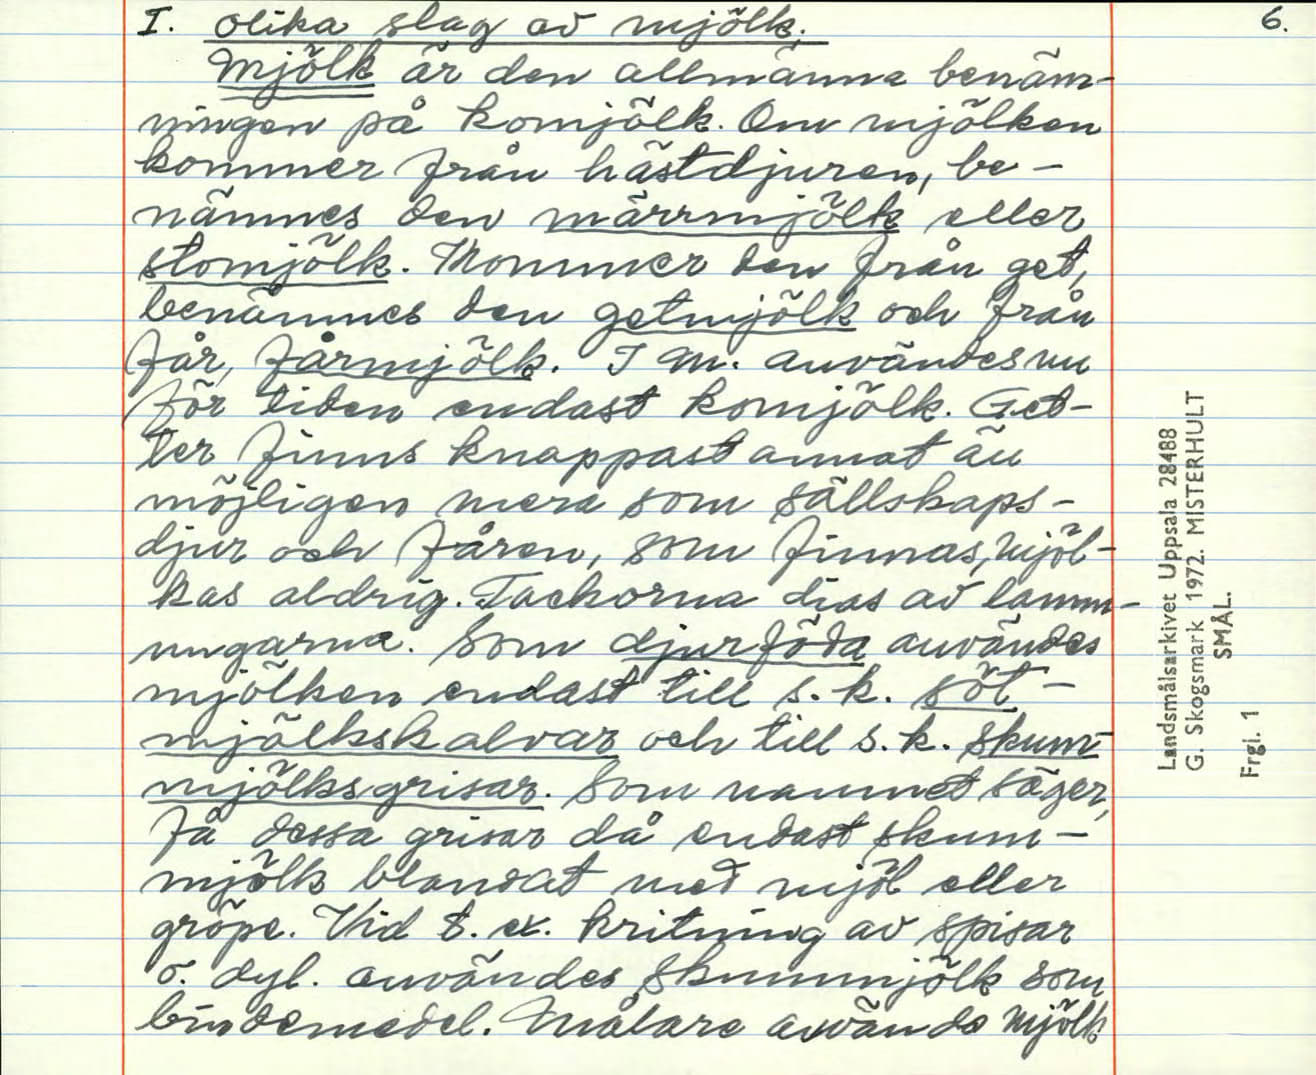 I. olika slag av mjölk. 6.
Mjölk är den allmänna benäm-
ningen på komjölk. Om mjölken
kommer från hästdjuren, be-
nämnes den märrmjölk eller
stomjölk. Kommer den från get,
benämnes den getmjölk och från
får, fårmjölk. I M. användes nu
för tiden endast komjölk. Get-
ter finns knappast annat än
möjligen mera som sällskaps-
djur och fåren, som finnas, mjöl-
kas aldrig. Tackorna dias av lamm-
ungarna. Som djurföda användes
mjölken endast till s.k. söt-
mjölkskalvar och till s.k. skum-
mjölksgrisar. Som namnet säger,
få dessa grisar då endast skum-
mjölk blandat med mjöl eller
gröpe. Vid t. ex. kritning av spisar
o. dyl. användes skummjölk som
bindemedel. Målare använde mjölk
Landsmålsarkivet Uppsala 28488
G. Skogsmark 1972. MISTERHULT
SMÅL.
Frgl. 1